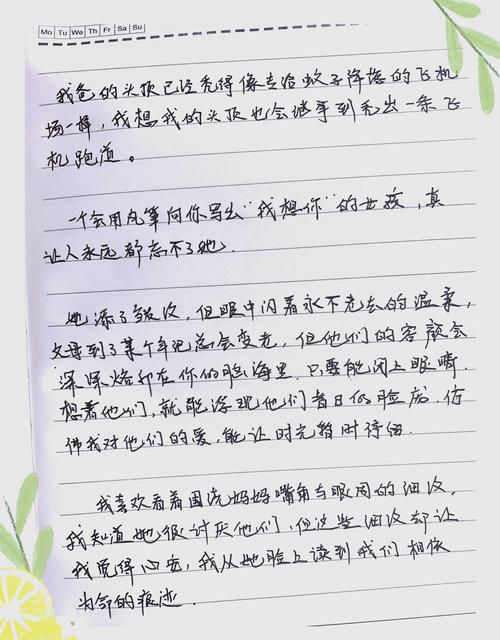 Mo Tu We Th Fr Sa Su
我爸的头顶已经秃得像专给蚊子降落的飞机
场一样，我想我的头顶也会继承到秃出一条飞
机跑道。
一个会用凡笔向你写出“我想你”的女孩，真
让人永远都忘不了她.
她添了皱纹，但眼中闪着永不老去的温柔，
父母到了某个年纪总会变老，但他们的容颜会
深深烙印在你的脑海里.只要能闭上眼睛.
想着他们，就能浮现他们昔日的脸庞.仿
佛我对他们的爱，能让时光暂时停留.
我喜欢看着围绕妈妈嘴角与眼周的细纹，
我知道她很讨厌他们，但这些细纹却让
我觉得心安，我从她脸上读到我们相依
为命的痕迹.